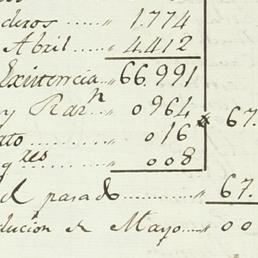 deros....„ 1.774
Abril...„ 4.412
Existencia...„ 66.991
y Raz.n...„ 0964 67.
to......„ 016
q.res......„ 008
el pasado......„ 67.
lucion de Mayo....„ 00